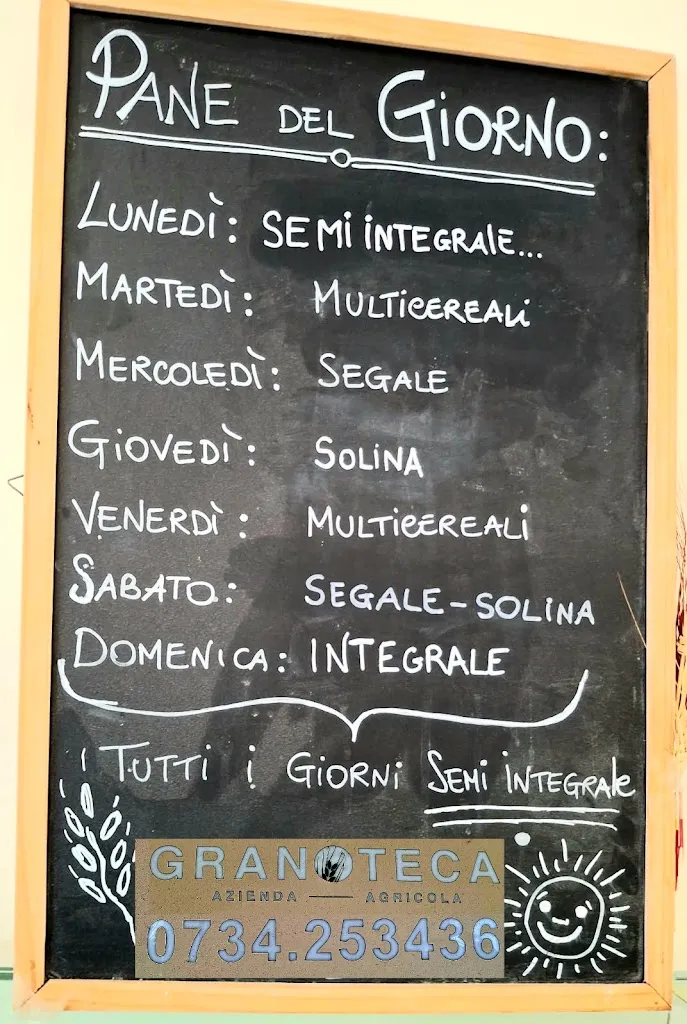 PANE DEL GIORNO:
LUNEDÌ: SEMI INTEGRALE...
MARTEDÌ: MULTICEREALI
MERCOLEDÌ: SEGALE
GIOVEDÌ: SOLINA
VENERDÌ: MULTICEREALI
SABATO: SEGALE-SOLINA
DOMENICA: INTEGRALE
TUTTI i GIORNI SEMI INTEGRALE
GRANOTECA
AZIENDA AGRICOLA
0734.253436